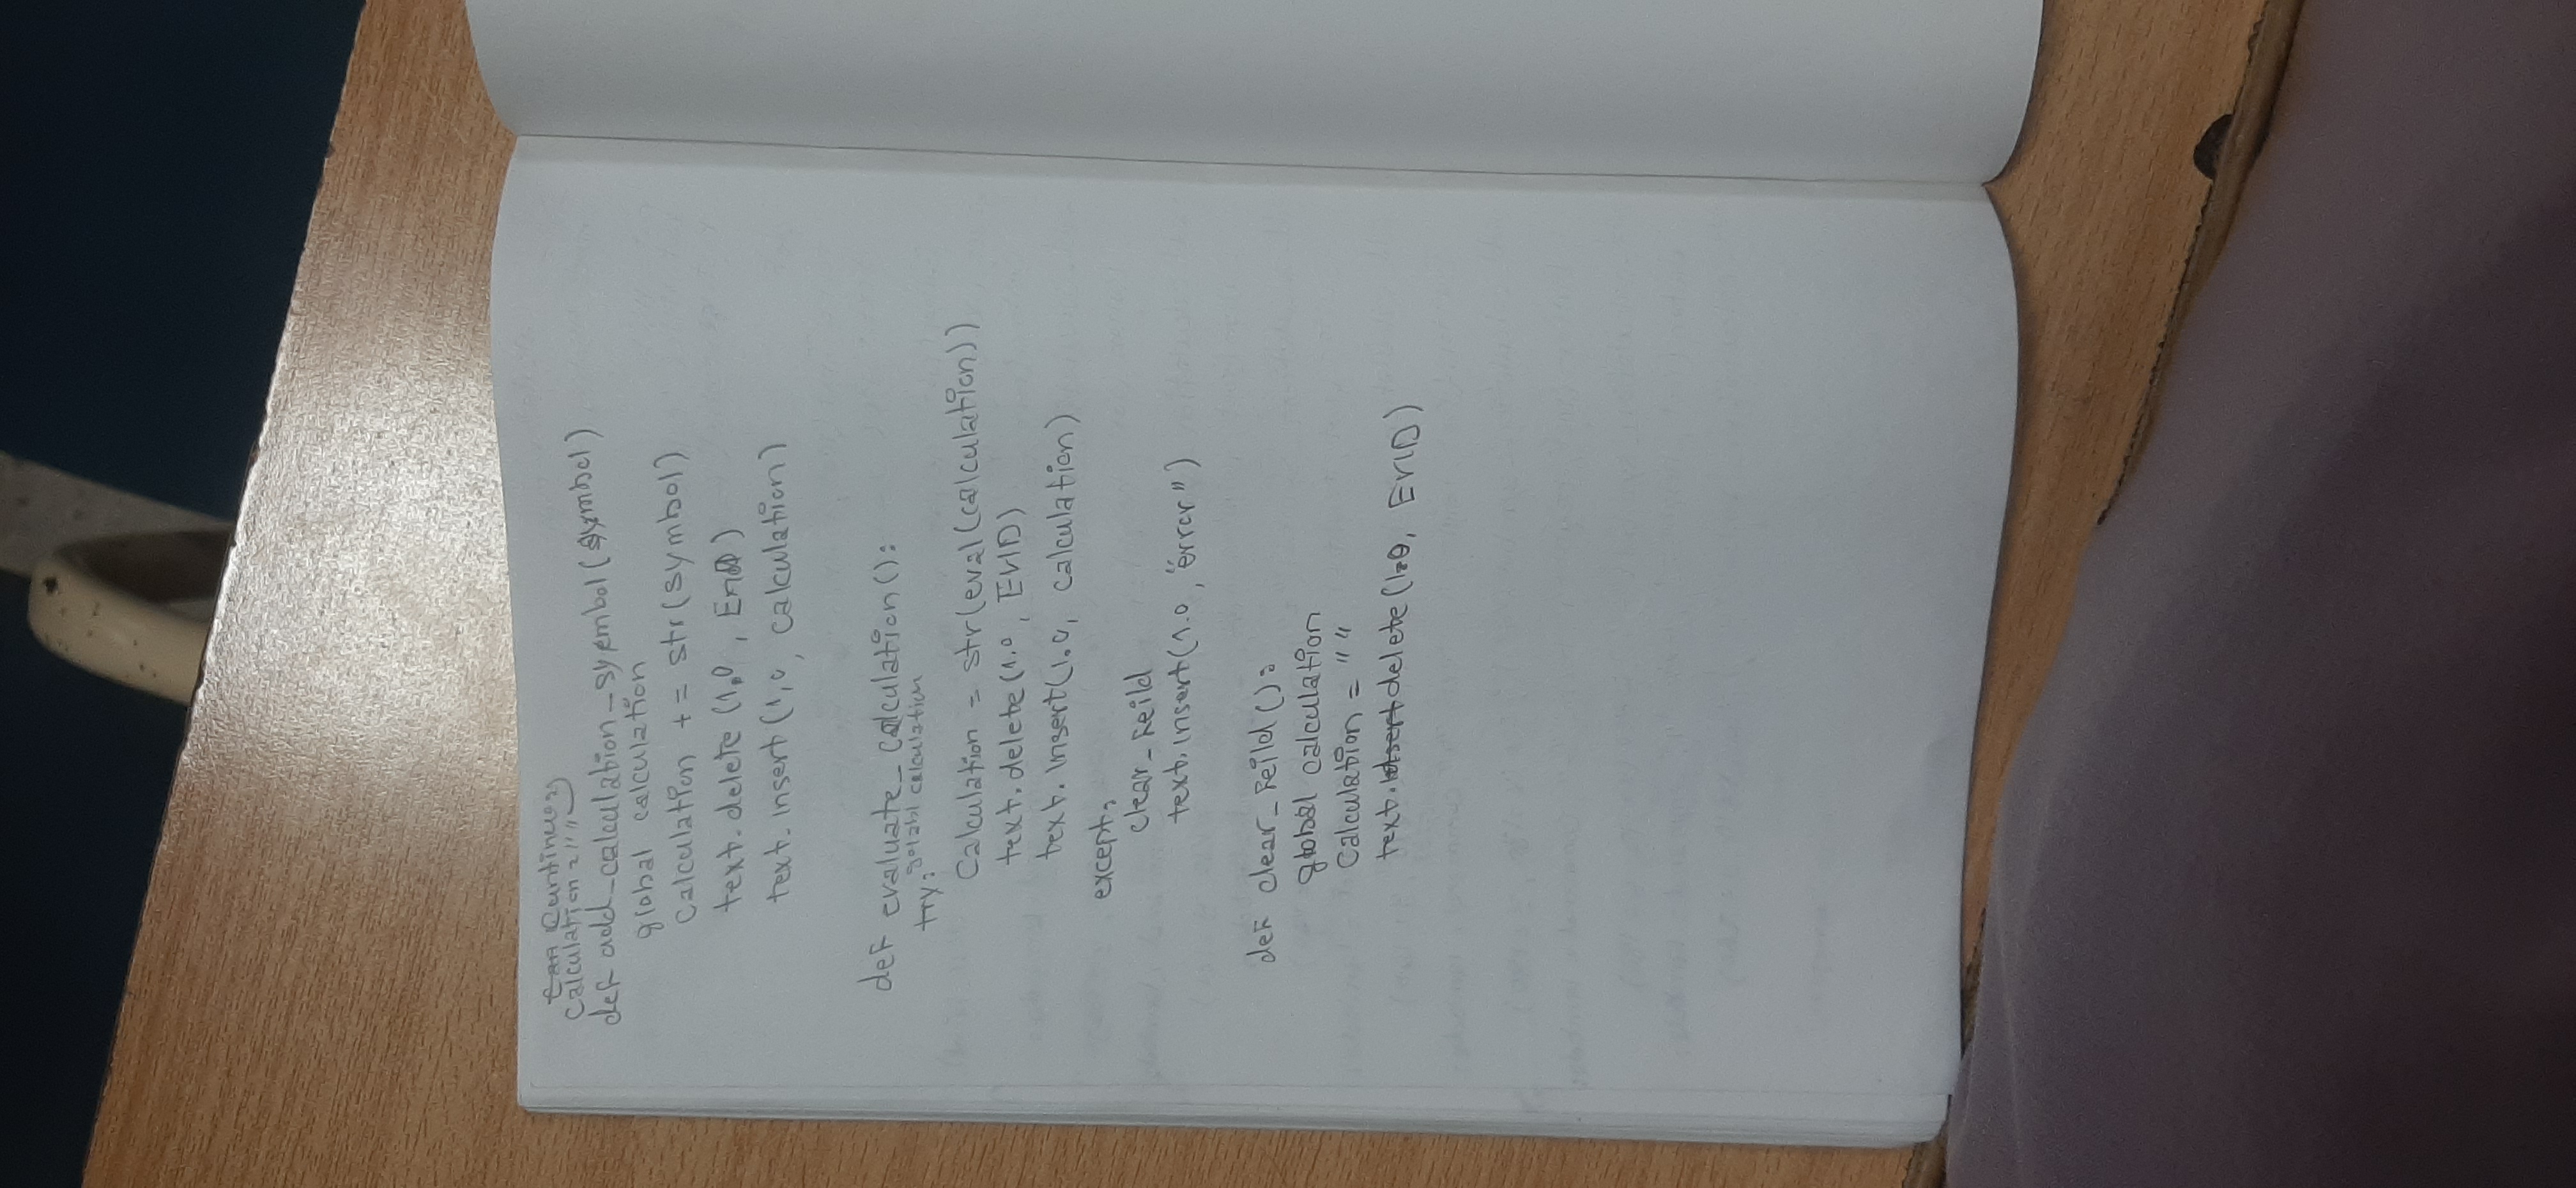 Continues
Calculation = " "
def add_calculation_syembol(symbol)
global calculation
Calculation += str(symbol)
text.delete (1.0, End)
text.insert (1,0, calculation)
def evaluate_calculation():
try: golabl calculation
Calculation = str(eval(calculation))
text.delete(1.0, END)
text.Insert(1.0, calculation)
except:
clear_feild
text.insert(1.0, "error")
def clear_feild():
global calculation
Calculation = " "
text.delete(1.0, END)